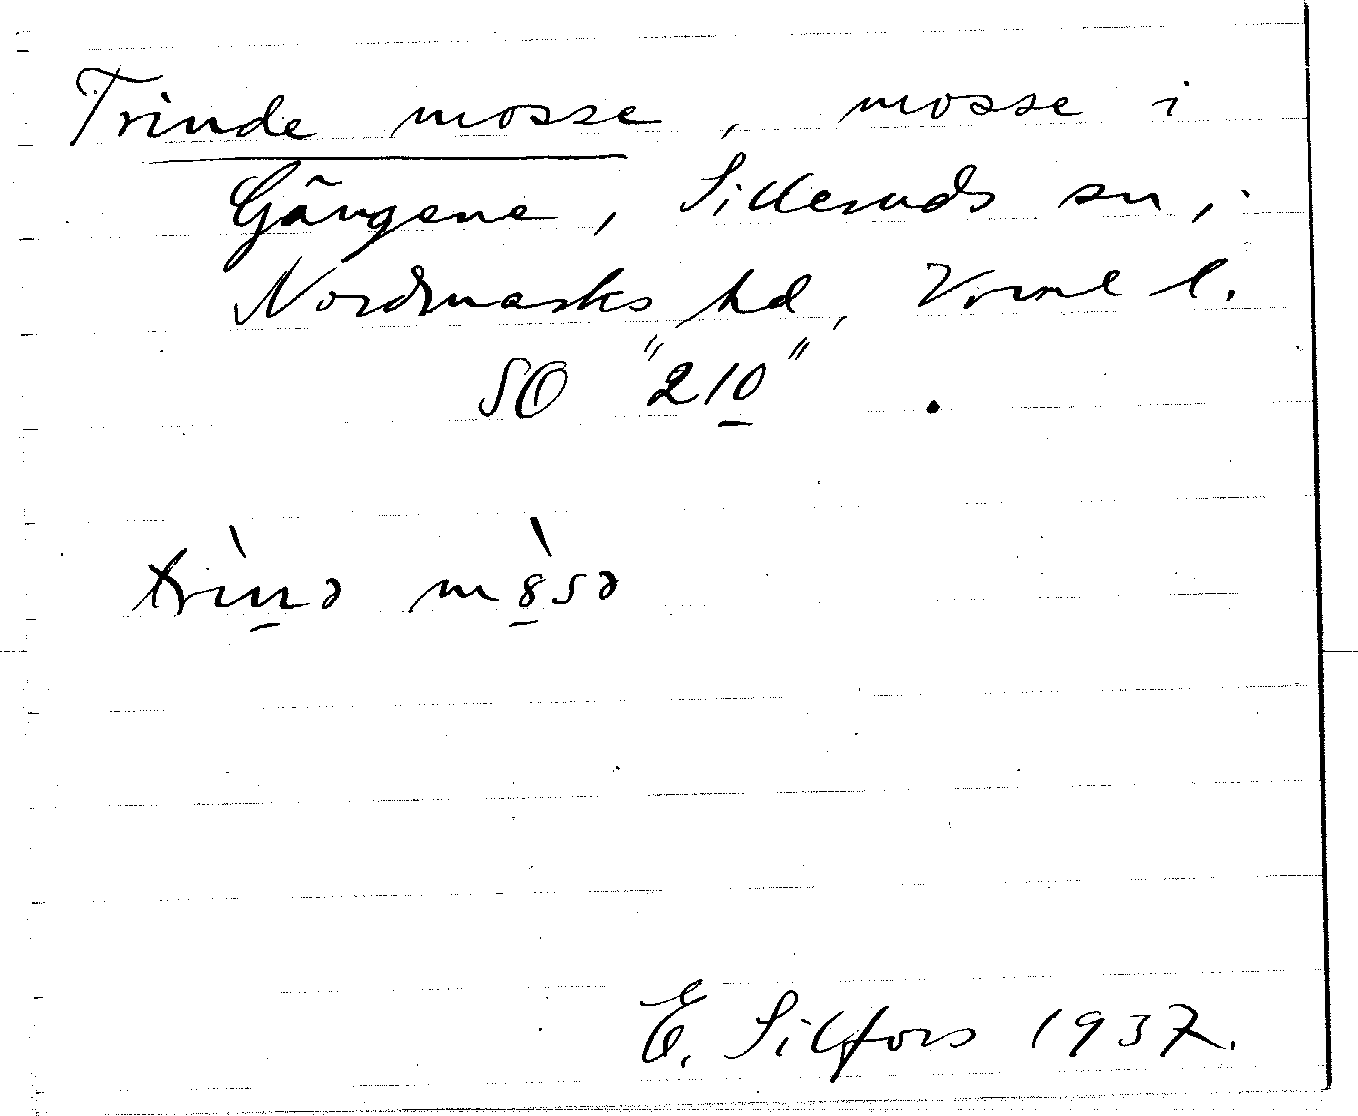 Trinde mosse, mosse i
Gängene, Silleruds sn,
Nordmarks hd, Vrml l.
SO "210".
trìnə mə̀sə
E. Silfors 1937.